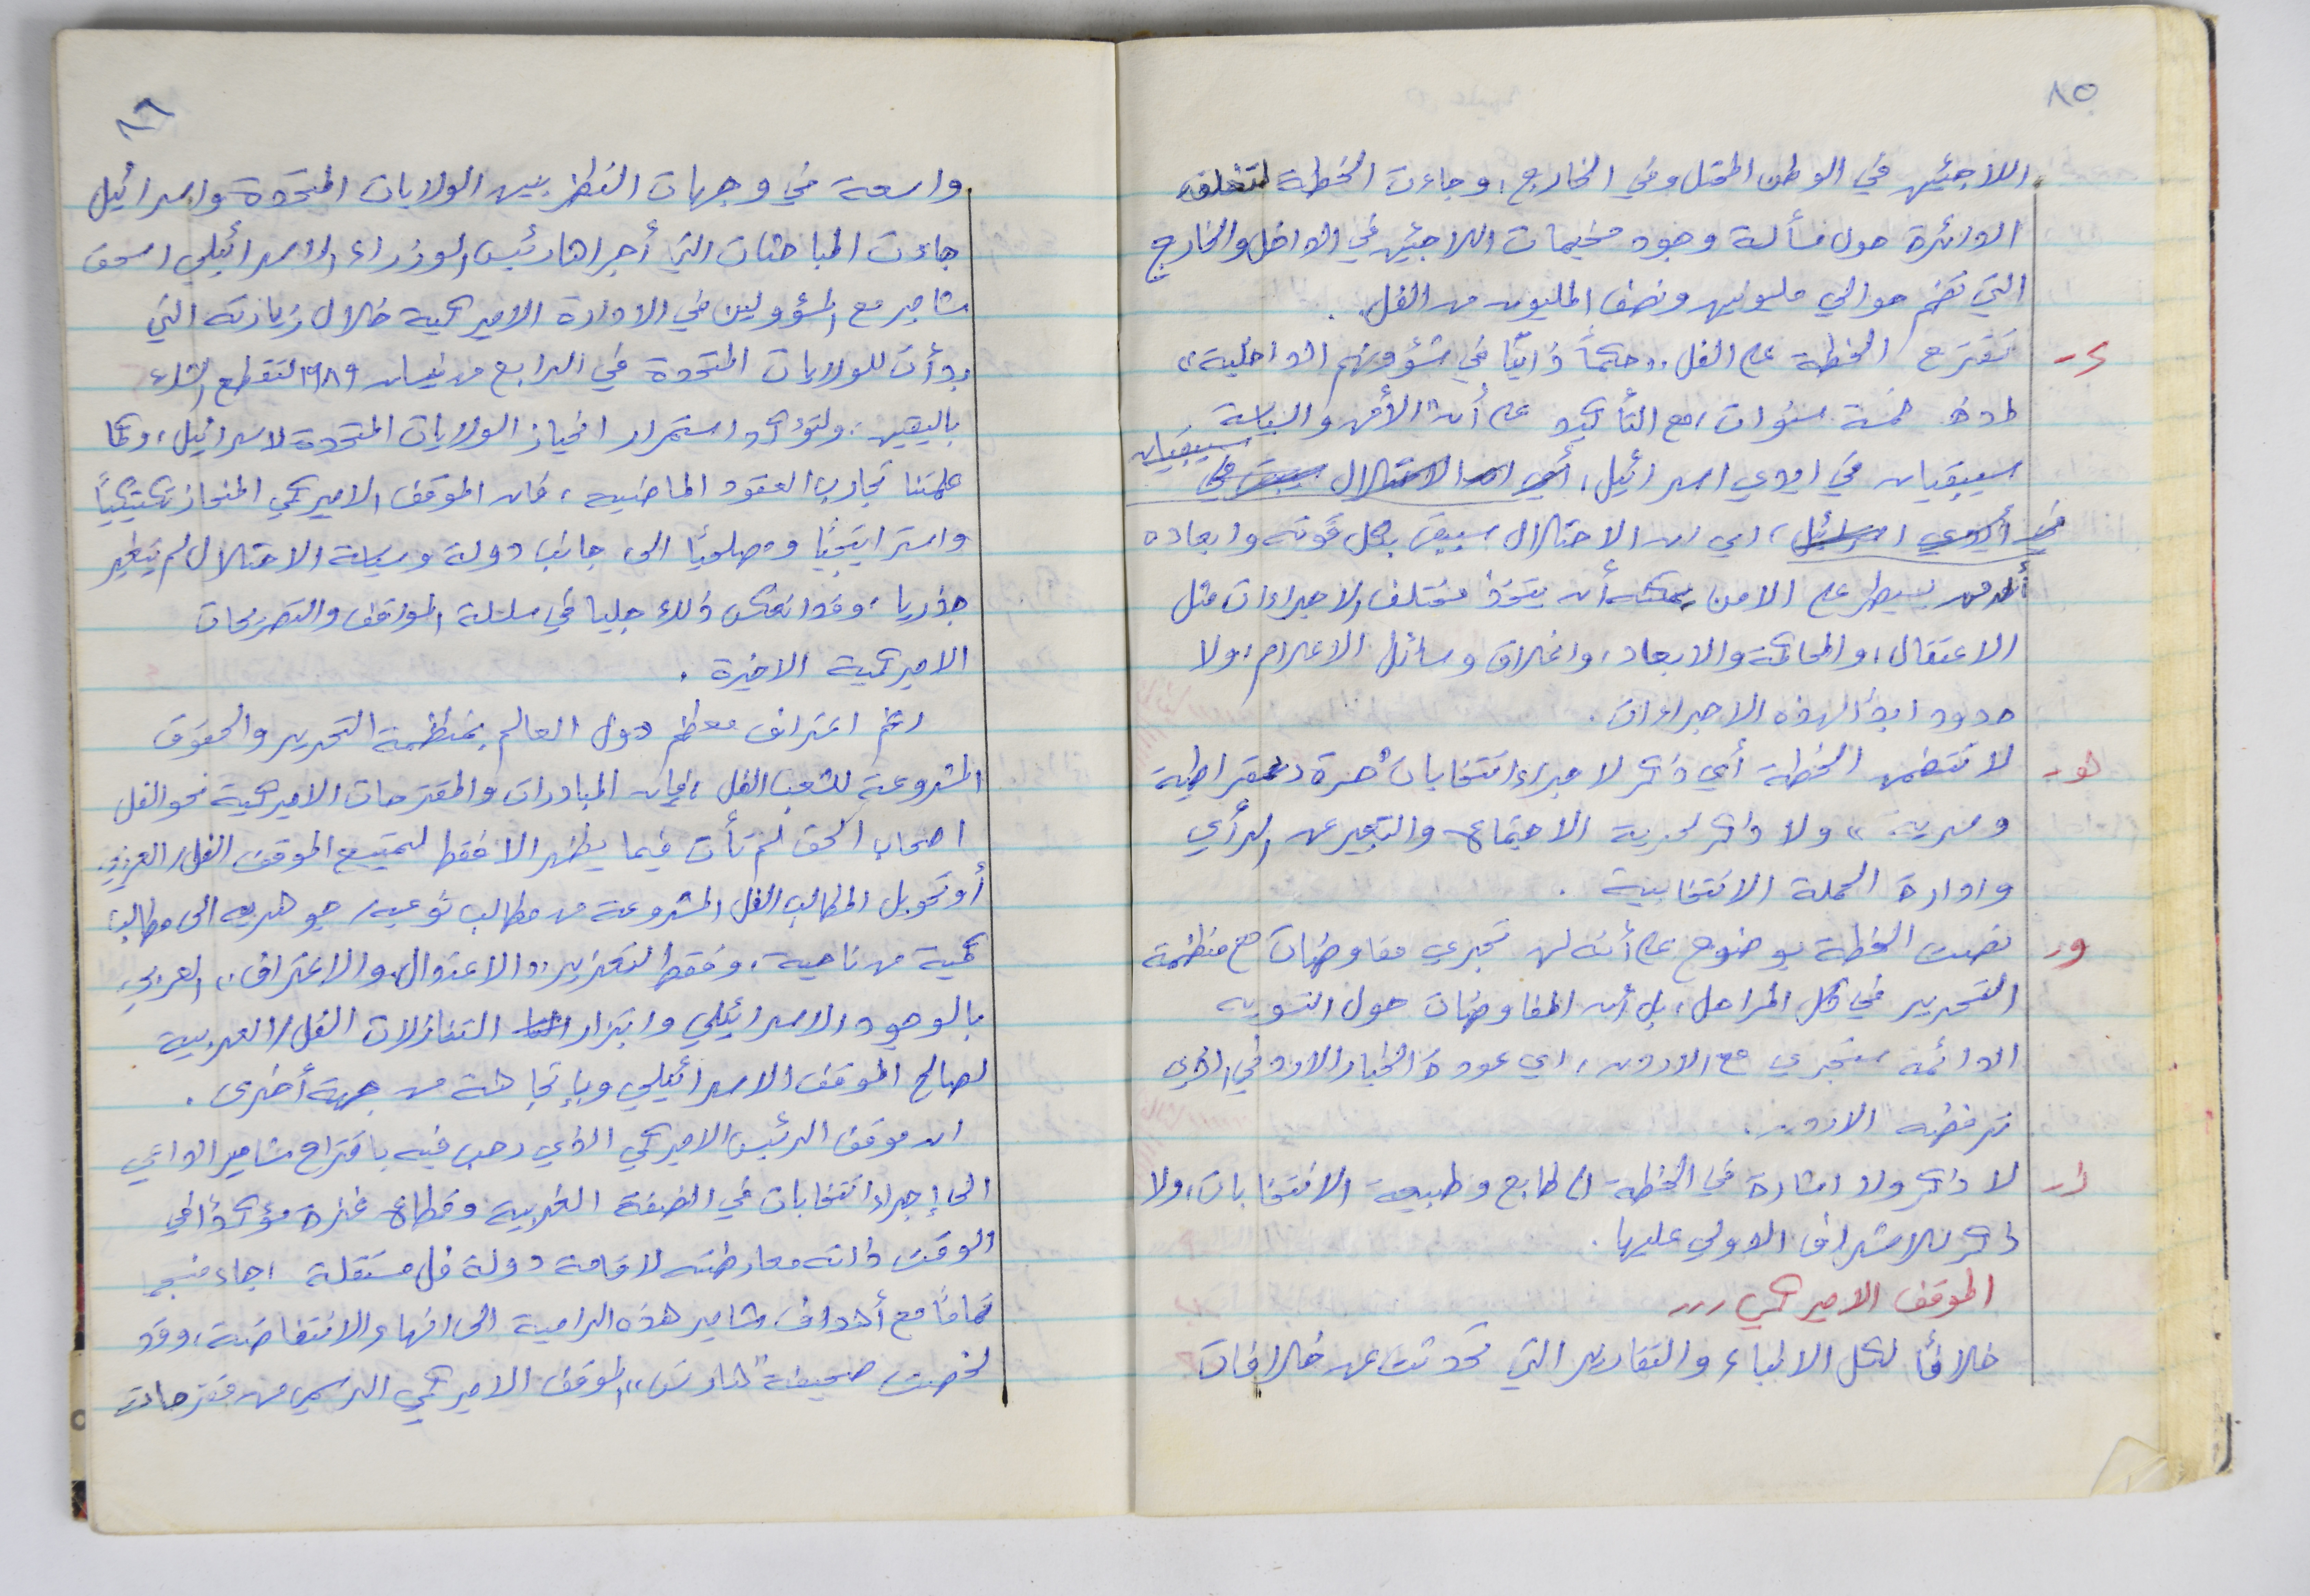 ٨٥
اللاجئين في الوطن المحتل وفي الخارج، وجاءت الخطة لتغلق
الدائرة حول مسألة وجود مخيمات اللاجئين في الداخل والخارج
التي تضم حوالي مليونين ونصف المليون من الفل.
د- تقترح الخطة على الفل "حكماً ذاتيّاً في شؤونهم الداخلية"
لمدة خمسة سنوات، مع التأكيد على أن "الأمن والسياسة
سيبقيان
سيبقيان في ايدي اسرائيل، أي ان الاحتلال سيبقى في
في أيدي اسرائيل، اي ان الاحتلال سيبقى بكل قوته وابعاده
لأن من يسيطر على الامن يمكنه أن يتخذ مختلف الاجراءات مثل
الاعتقال، والمحاكمة والابعاد، واغلاق وسائل الاعلام، ولا
حدود ابداً لهذه الاجراءات.
هـ- لا تتضمن الخطة أي ذكر لاجراء انتخابات "حرة ديمقراطية
وسرية" ولا ذكر لحرية الاجتماع والتعبير عن الرأي
وادارة الحملة الانتخابية.
و- نصت الخطة بوضوح على أنه لن تجري مفاوضات مع منظمة
التحرير في كل المراحل، بل أن المفاوضات حول التسوية
الدائمة ستجري مع الاردن، اي عودة الخيار الاردني الذي
ترفضه الاردن.
ز- لا ذكر ولا اشارة في الخطة الى طابع وطبيعة الانتخابات، ولا
ذكر للاشراف الدولي عليها.
الموقف الاميركي ...
خلافاً لكل الانباء والتقارير التي تحدثت عن خلافات
٨٦
واسعة في وجهات النظر بين الولايات المتحدة واسرائيل
جاءت المباحثات التي أجراها رئيس الوزراء الاسرائيلي اسحق
شامير مع المسؤولين في الادارة الاميركية خلال زيارته التي
بدأت للولايات المتحدة في الرابع من نيسان ١٩٨٩ لتقطع الشك
باليقين، ولتؤكد استمرار انحياز الولايات المتحدة لاسرائيل، وكما
علمتنا تجارب العقود الماضية، فان الموقف الاميركي المنحاز تكتيكيّاً
واستراتيجيّاً ومصلحيّاً الى جانب دولة وسياسة الاحتلال لم يتغير
جذريا، وقد انعكس ذلك جليا في سلسلة المواقف والتصريحات
الاميركية الاخيرة.
رغم اعتراف معظم دول العالم بمنظمة التحرير والحقوق
المشروعة للشعب الفل، فإن المبادرات والمقترحات الاميركية نحو الفل
اصحاب الحق لم تأت فيما يظهر الا فقط لتمييع الموقف الفل/العربي.
أو تحويل المطالب الفل المشروعة من مطالب نوعية/جوهرية الى مطالب
كمية من ناحية، وفقط لتعزيز "الاعتدال والاعتراف" العربي
بالوجود الاسرائيلي وابتزاز التنازلات الفل/العربية
لصالح الموقف الاسرائيلي وبإتجاهه من جهة أخرى.
ان موقف الرئيس الاميركي الذي رحب فيه باقتراح شامير الداعي
الى إجراء انتخابات في الضفة الغربية وقطاع غزة مؤكداً في
الوقت ذاته معارضته لاقامة دولة فل مستقلة، جاء منسجما
تماماً مع أهداف شامير هذه الرامية الى انهاء الانتفاضة، وقد
لخصت صحيفة "هآرتس" الموقف الاميركي الرسمي من مقترحات